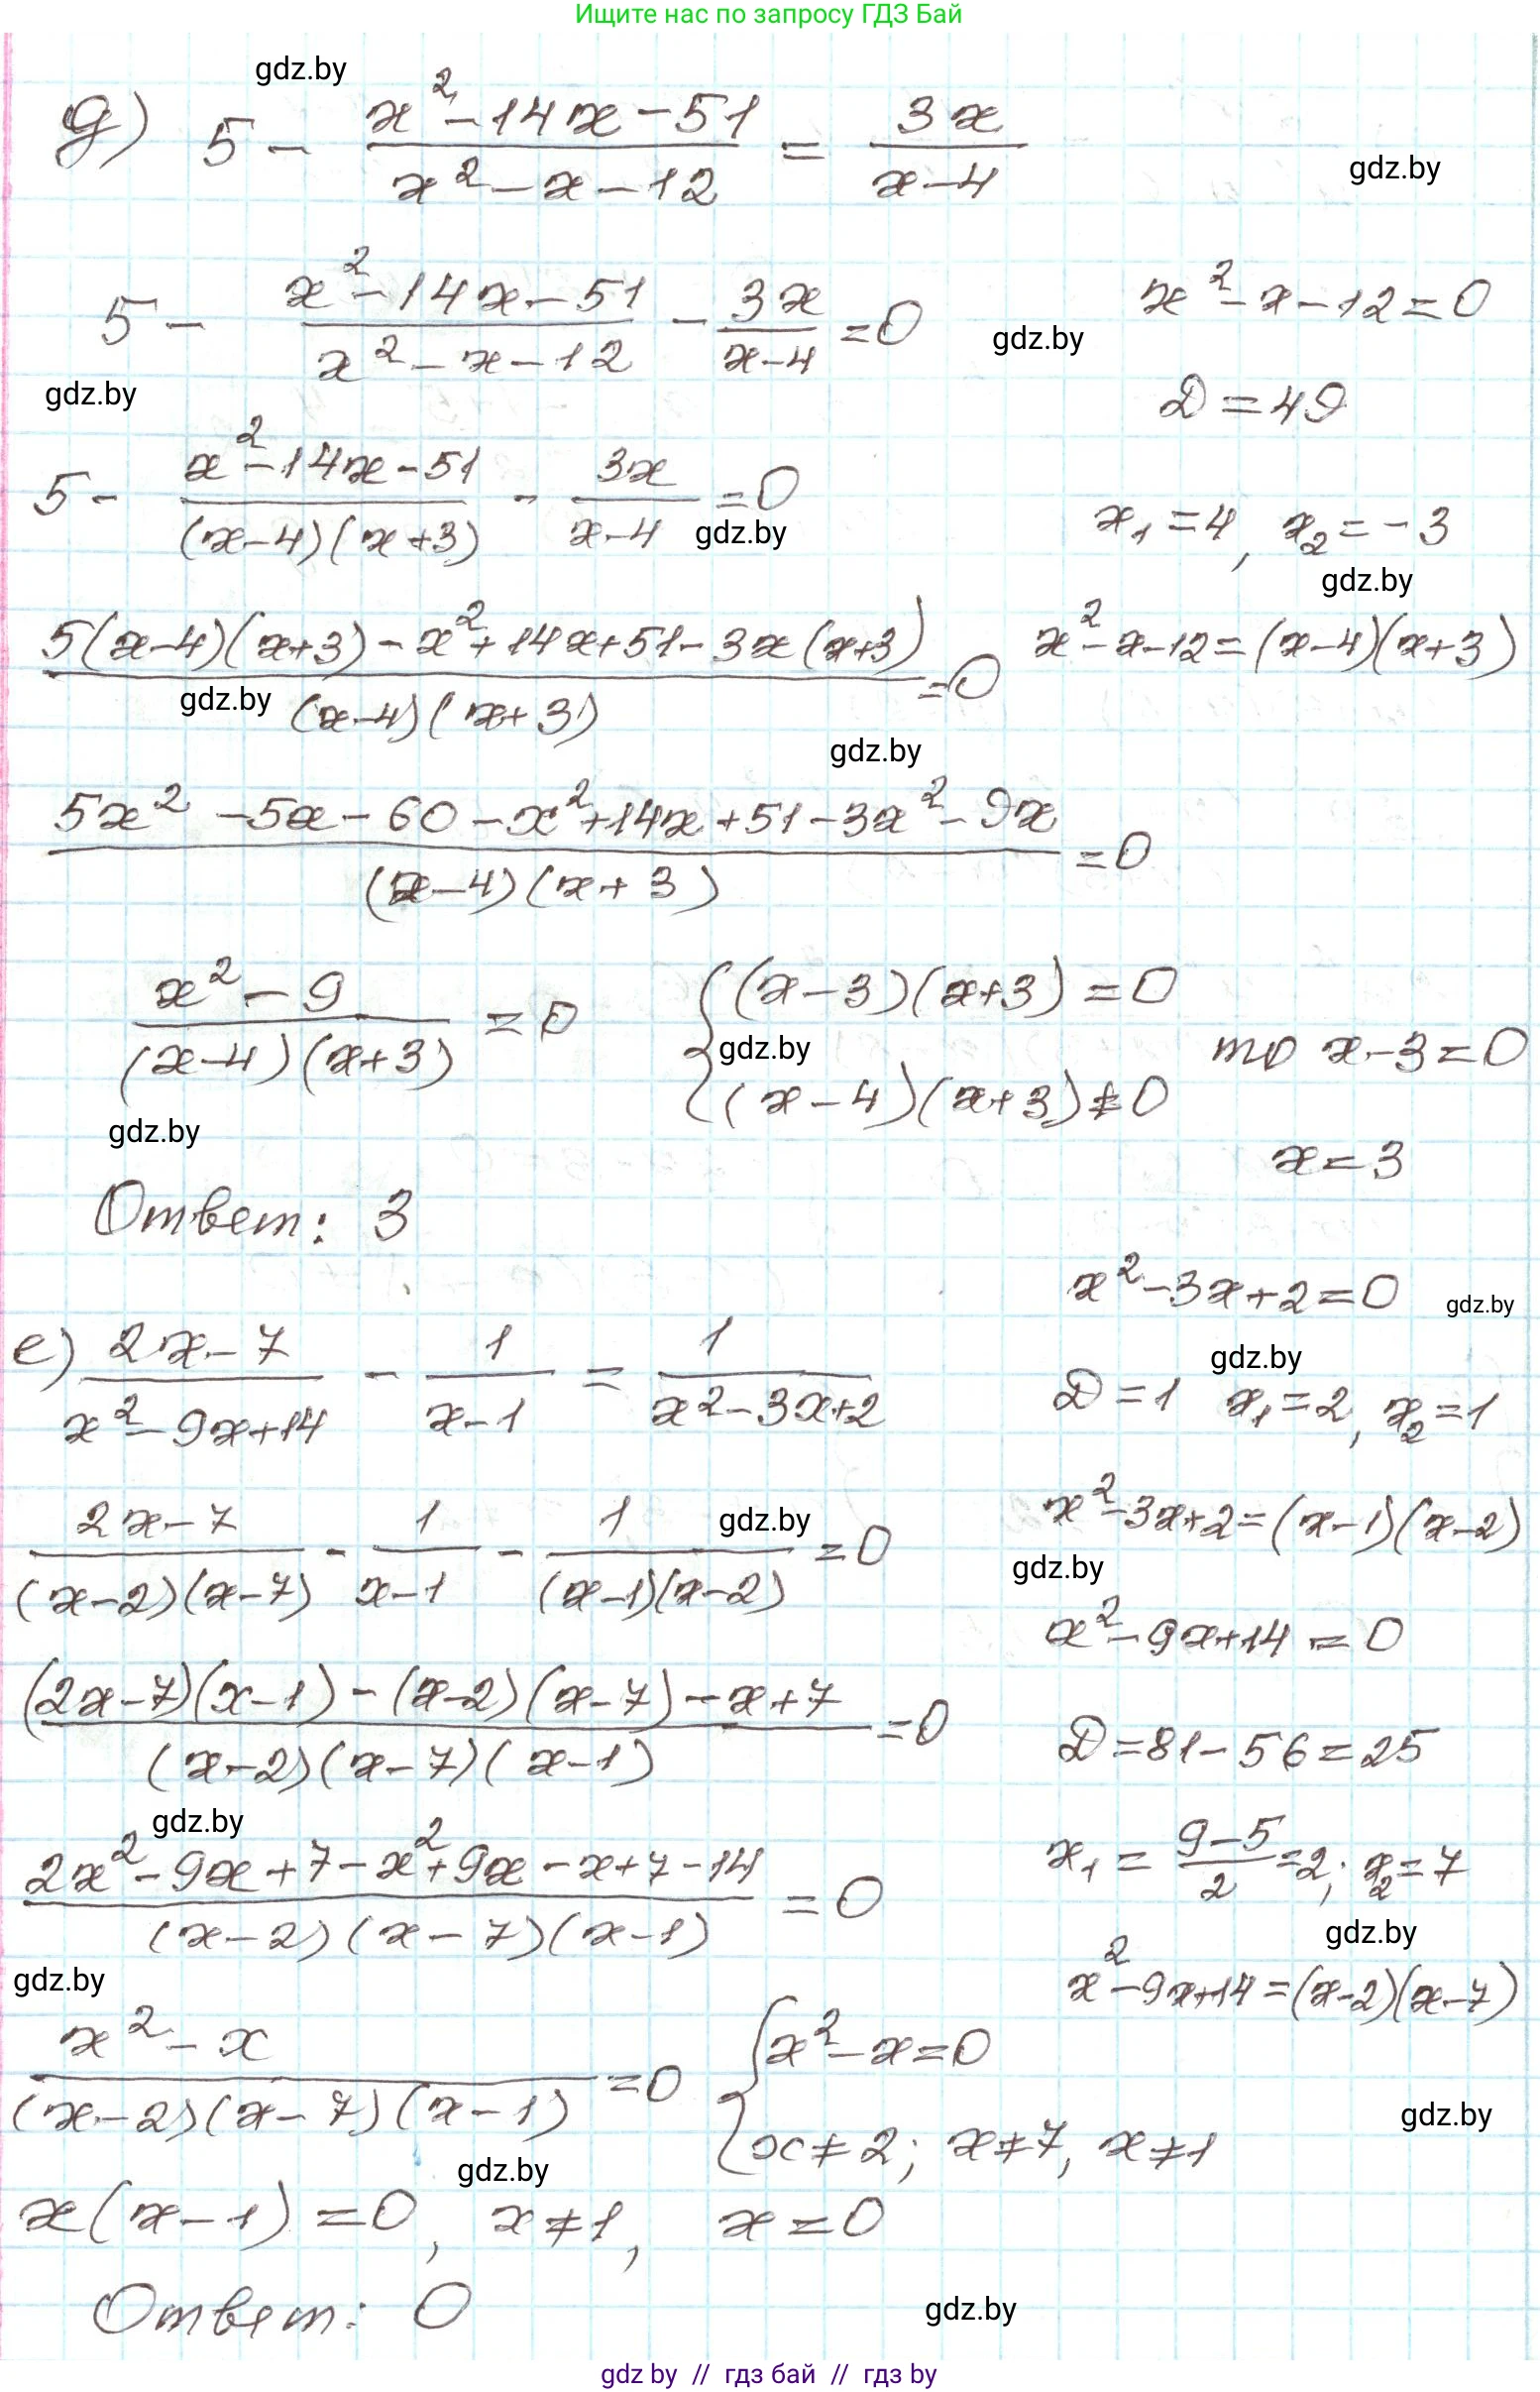 Ищите нас по запросу ГДЗ Бай
gdz.by
д) 5 - (x² - 14x - 51)/(x² - x - 12) = 3x/(x - 4)
gdz.by
5 - (x² - 14x - 51)/(x² - x - 12) - 3x/(x - 4) = 0
x² - x - 12 = 0
gdz.by
gdz.by
D = 49
5 - (x² - 14x - 51)/((x - 4)(x + 3)) - 3x/(x - 4) = 0
gdz.by
x₁ = 4, x₂ = -3
gdz.by
(5(x - 4)(x + 3) - x² + 14x + 51 - 3x(x + 3))/((x - 4)(x + 3)) = 0
x² - x - 12 = (x - 4)(x + 3)
gdz.by
gdz.by
(5x² - 5x - 60 - x² + 14x + 51 - 3x² - 9x)/((x - 4)(x + 3)) = 0
(x² - 9)/((x - 4)(x + 3)) = 0 { (x - 3)(x + 3) = 0
gdz.by
(x - 4)(x + 3) ≠ 0 то x - 3 = 0
gdz.by
x = 3
Ответ: 3
x² - 3x + 2 = 0
gdz.by
е) (2x - 7)/(x² - 9x + 14) - 1/(x - 1) = 1/(x² - 3x + 2)
gdz.by
D = 1 x₁ = 2, x₂ = 1
(2x - 7)/((x - 2)(x - 7)) - 1/(x - 1) - 1/((x - 1)(x - 2)) = 0
gdz.by
x² - 3x + 2 = (x - 1)(x - 2)
gdz.by
x² - 9x + 14 = 0
((2x - 7)(x - 1) - (x - 2)(x - 7) - x + 7)/((x - 2)(x - 7)(x - 1)) = 0
D = 81 - 56 = 25
gdz.by
(2x² - 9x + 7 - x² + 9x - x + 7 - 14)/((x - 2)(x - 7)(x - 1)) = 0
x₁ = (9 - 5)/2 = 2; x₂ = 7
gdz.by
gdz.by
x² - 9x + 14 = (x - 2)(x - 7)
(x² - x)/((x - 2)(x - 7)(x - 1)) = 0 { x² - x = 0
x ≠ 2; x ≠ 7, x ≠ 1
gdz.by
gdz.by
x(x - 1) = 0, x ≠ 1, x = 0
Ответ: 0
gdz.by
gdz by // гдз бай // гдз by